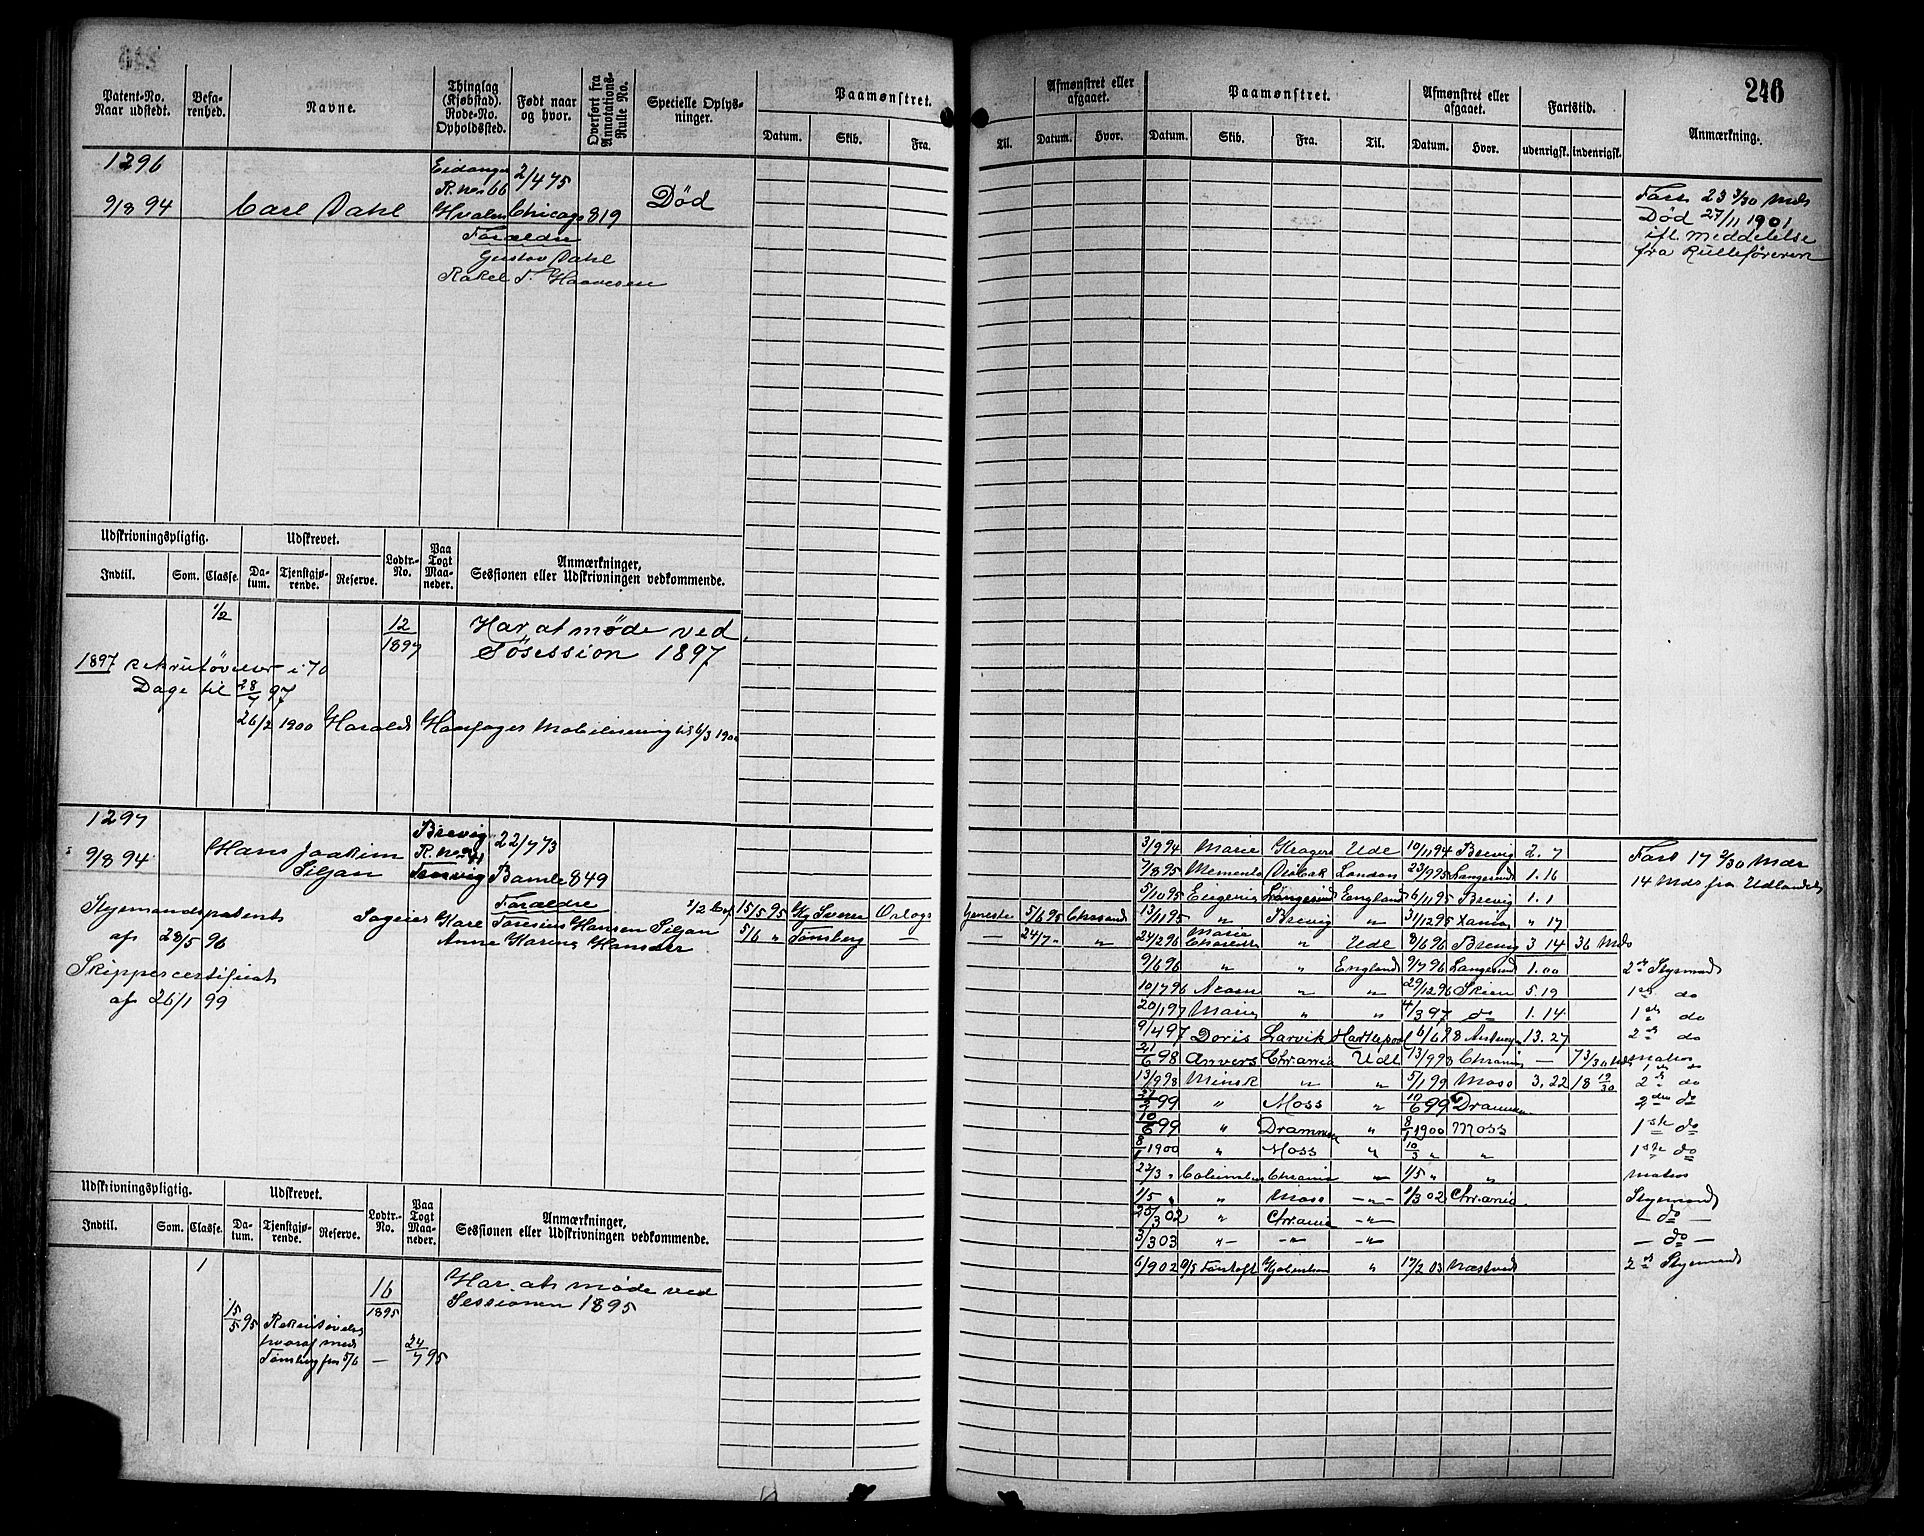 246
Patent-No. Naar udstedt.
Befarenhed.
Navne.
Thinglag (Kjøbstad). Rode-No. Opholdssted.
Født naar og hvor.
Overført fra Annotations-Rulle No.
Specielle Oplysninger.
Paamønstret.
Datum. Skib. Fra. Til.
Afmønstret eller afgaaet.
Datum. Hvor.
Paamønstret.
Datum. Skib. Fra. Til.
Afmønstret eller afgaaet.
Datum. Hvor.
Fartstid.
udenrigsk. indenrigsk.
Anmærkning.
1296
9/8 94 Carl Dahl
Eidanger
R. no 66
Hvalen
2/4 75
Chicago 819
Død
Forældre
Gustav Dahl
Rakel T. Haavesen
Fart 23 3/30 Mds
Død 27/11 1901
ifl. Meddelelse
fra Rulleføreren
Udskrivningspligtig. Udskrevet.
Indtil. Som. Classe. Datum. Tjenstgjørende. Reserve. Lodtr.-No. Paa Togt Maaneder.
Anmærkninger, Sessionen eller Udskrivningen vedkommende.
1/2
12/1897
Har at møde ved
Søsession 1897
1897 rekrutøvelser i 70
Dage til 28/7 97
26/2 1900 Harald Haarfager Mobilisering til 6/3 1900
1297
9/8 94 Hans Joakim
Siljan
Brevig
22/7 73
Bamle 849
Forældre
Kare Toresius Hansen Siljan
Anne Karine Hansder
Styrmandspatent
af 28/5 96
Skippercertificat
af 26/1 99
15/5 95 Kg Sverre Orlogs tjeneste 5/6 95 Chrsand
5/6 " Tønsberg — — 24/7 " "
Fart 17 9/30 Mdr
14 Mds fra Udlandet
3/9 94 Marie Kragerø Udl 10/11 94 Brevig 2. 7
7/8 95 Memento London 23/9 95 Langesund 1. 16
5/10 95 Eugenie Langesund England 6/11 95 Brevig 1. 1
13/11 95 " Brevig " 31/12 95 Xania " 17
24/2 96 Marie " Udl 8/6 96 Brevig 3 14 36 Mds
9/6 96 " " England 9/7 96 Langesund 1.00 2den Styrmand
10/7 96 " " 29/12 96 Skien 5. 19 1ste do
20/1 97 Marie " " 4/3 97 do 1. 14 1ste do
9/4 97 Doris Larvik Hartlepool 6/6 98 13. 27 2den do
21/6 98 Anvers Chr.ania Udl 13/9 98 Chrania — 7 3/30 Mds matros
13/9 98 Minsk " " 5/1 99 Moss 3. 22 18 19/30 2den do
99 " Moss " 10/6 99 Drammen 2den do
10/6 99 " Drammen " 8/1 1900 Moss 1ste do
8/1 1900 " Moss " 10/3 " " 1ste do
22/3 " Columbus Chrania — 1/5 " " matros
1/5 " " Moss — 1/3 02 Chr.ania Styrmand
25/3 02 " Chr.ania — — do —
3/3 03 " — " — — " — — " — — do —
6/9 02 D/S Tantoft Kjøbenhavn " 17/2 03 Næstved 2den Styrmand
Udskrivningspligtig. Udskrevet.
Indtil. Som. Classe. Datum. Tjenstgjørende. Reserve. Lodtr.-No. Paa Togt Maaneder.
Anmærkninger, Sessionen eller Udskrivningen vedkommende.
1
16/1895
Har at møde ved
Sessionen 1895
15/5 95 Rekrutøvelse
hvoraf med
Tønsberg fra 5/6 — 24/7 95